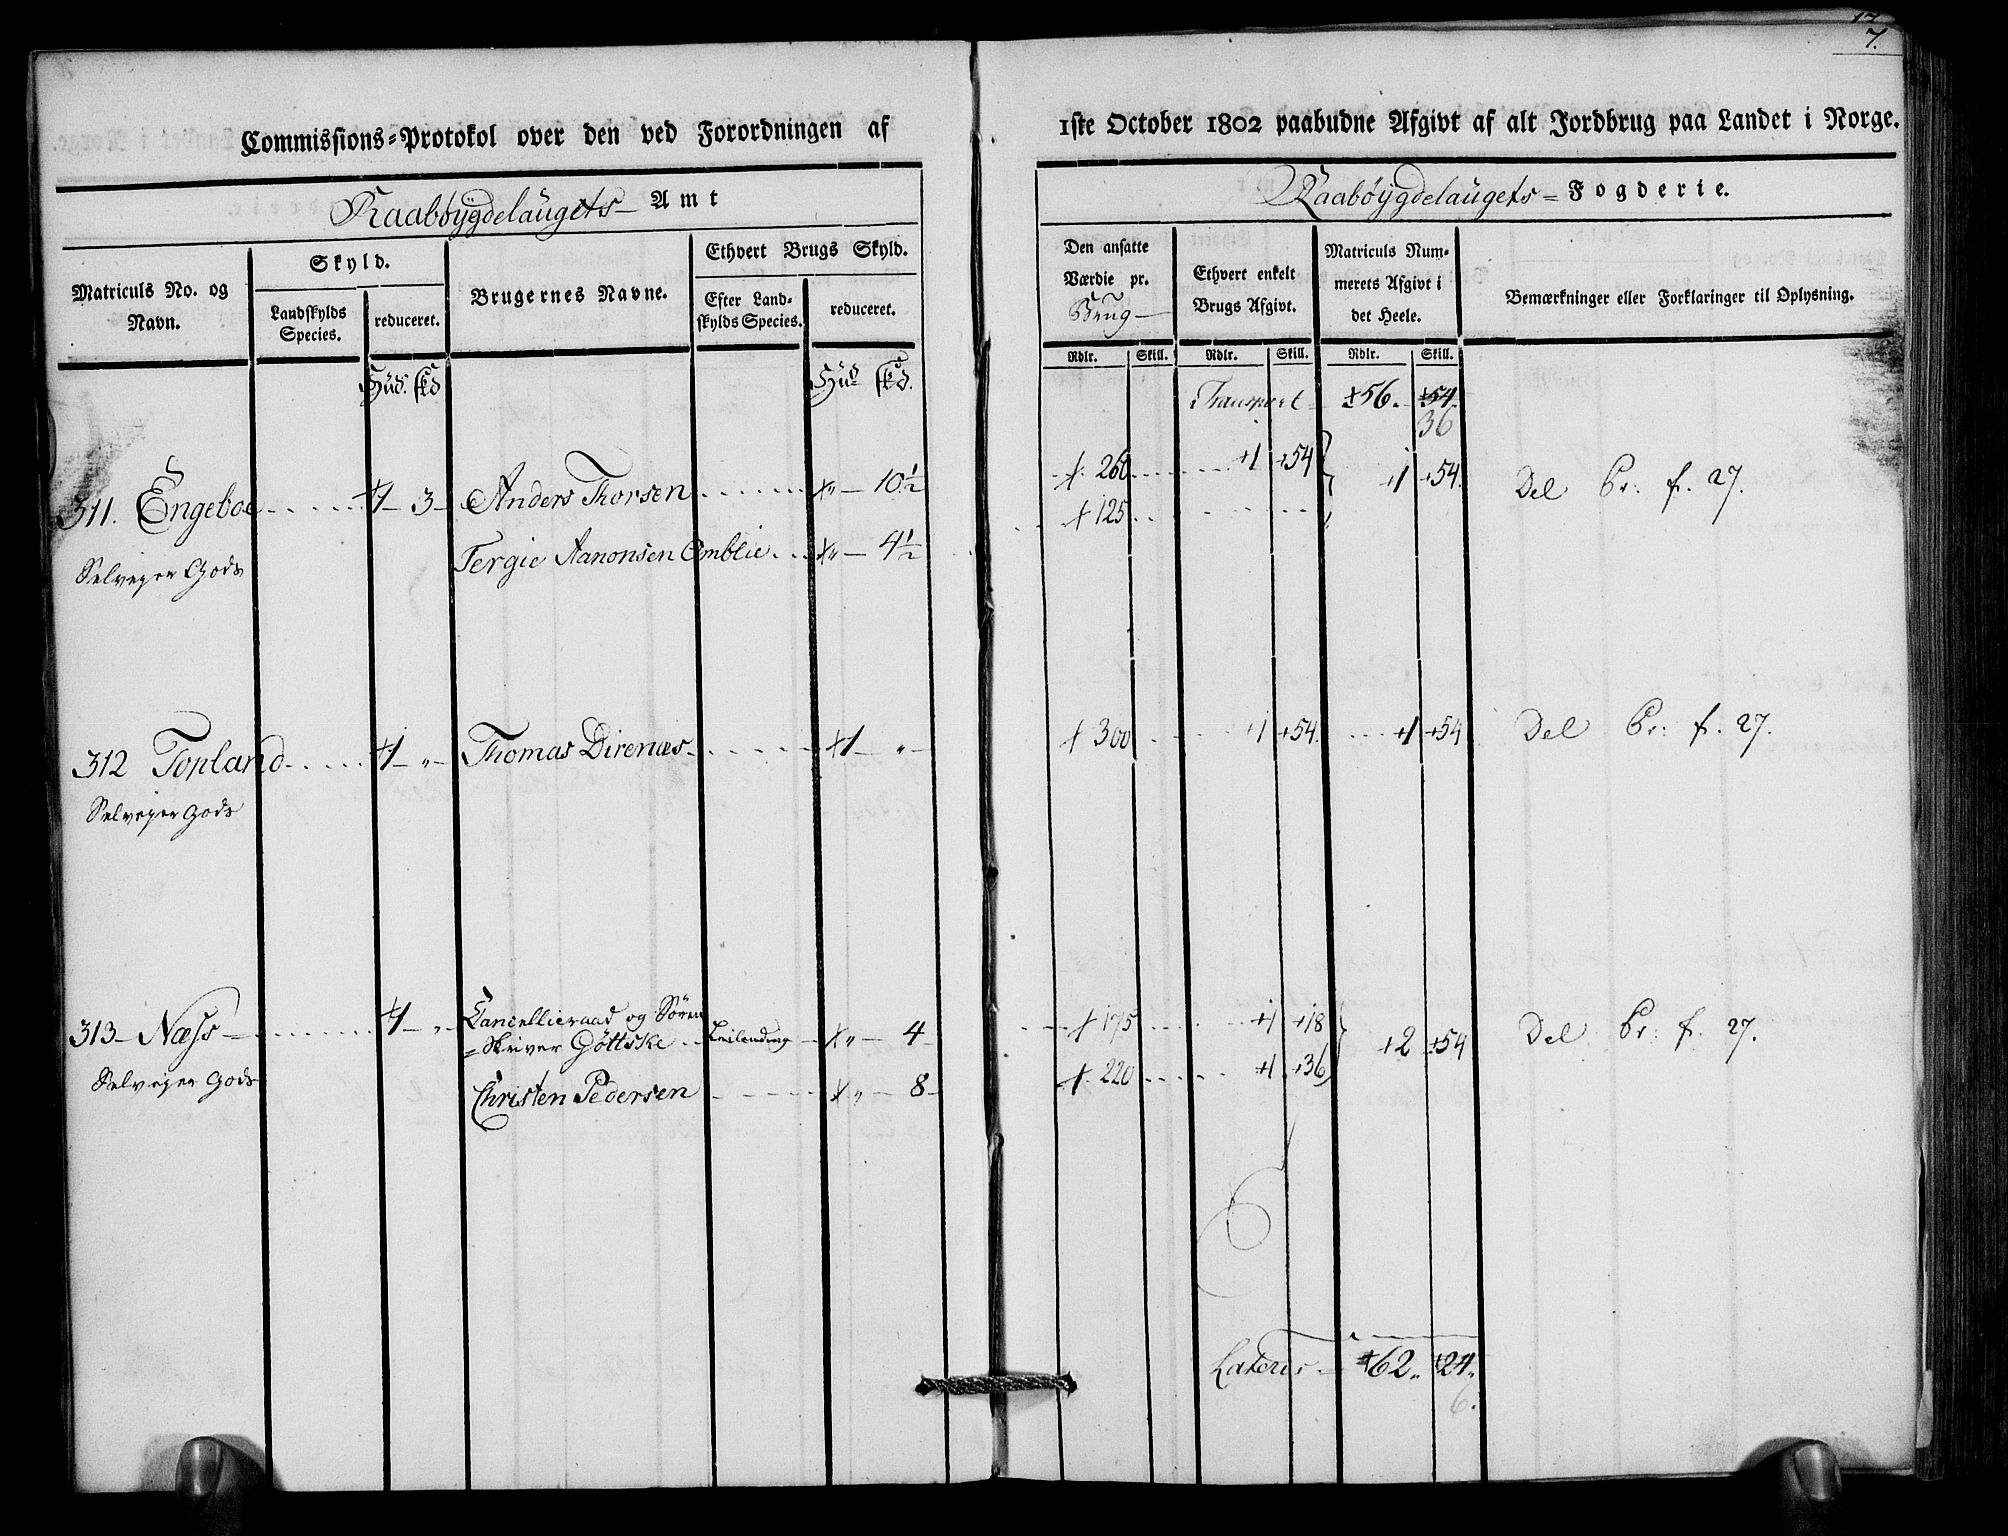 7.
Commissions-Protokol over den ved Forordningen af
Raabøygdelaugets Amt
Matriculs No. og Navn.
Skyld.
Landskylds Species.
reduceret.
Brugernes Navne.
Ethvert Brugs Skyld.
Efter Landskylds Species.
reduceret.
Hud. skd
Hud skd.
311. Engeboe 1 - 3 - Anders Thorsen " - 10 1/2
Selveyer Gods Tergie Aanonsen Omblie " - 4 1/2
312 Topland 1 - " - Thomas Direnæs 1 - " -
Selveyer Gods
313 - Næss - 1 - " - Cancellieraad og Sören
= Skriver Göttske Leilending " - 4 -
Selveyer Gods Christen Pedersen " - 8 -
1ste October 1802 paabudne Afgivt af alt Jordbrug paa Landet i Norge.
Raabøygdelaugets = Fogderie.
Den ansatte Værdie pr. Brug
Ethvert enkelt Brugs Afgivt.
Matriculs Nummerets Afgivt i det Heele.
Bemærkninger eller Forklaringer til Oplysning.
Rdlr. Skill. Rdlr. Skill. Rdlr. Skill.
Transport 56. 54.
36
260 1 54 1 54. Del Pr: f. 27.
125
300 1 54. 1 54 Del Pr: f. 27.
175 1 18 2 54 Del Pr: f. 27.
220 1 36
Lateris 62. 24.
6.